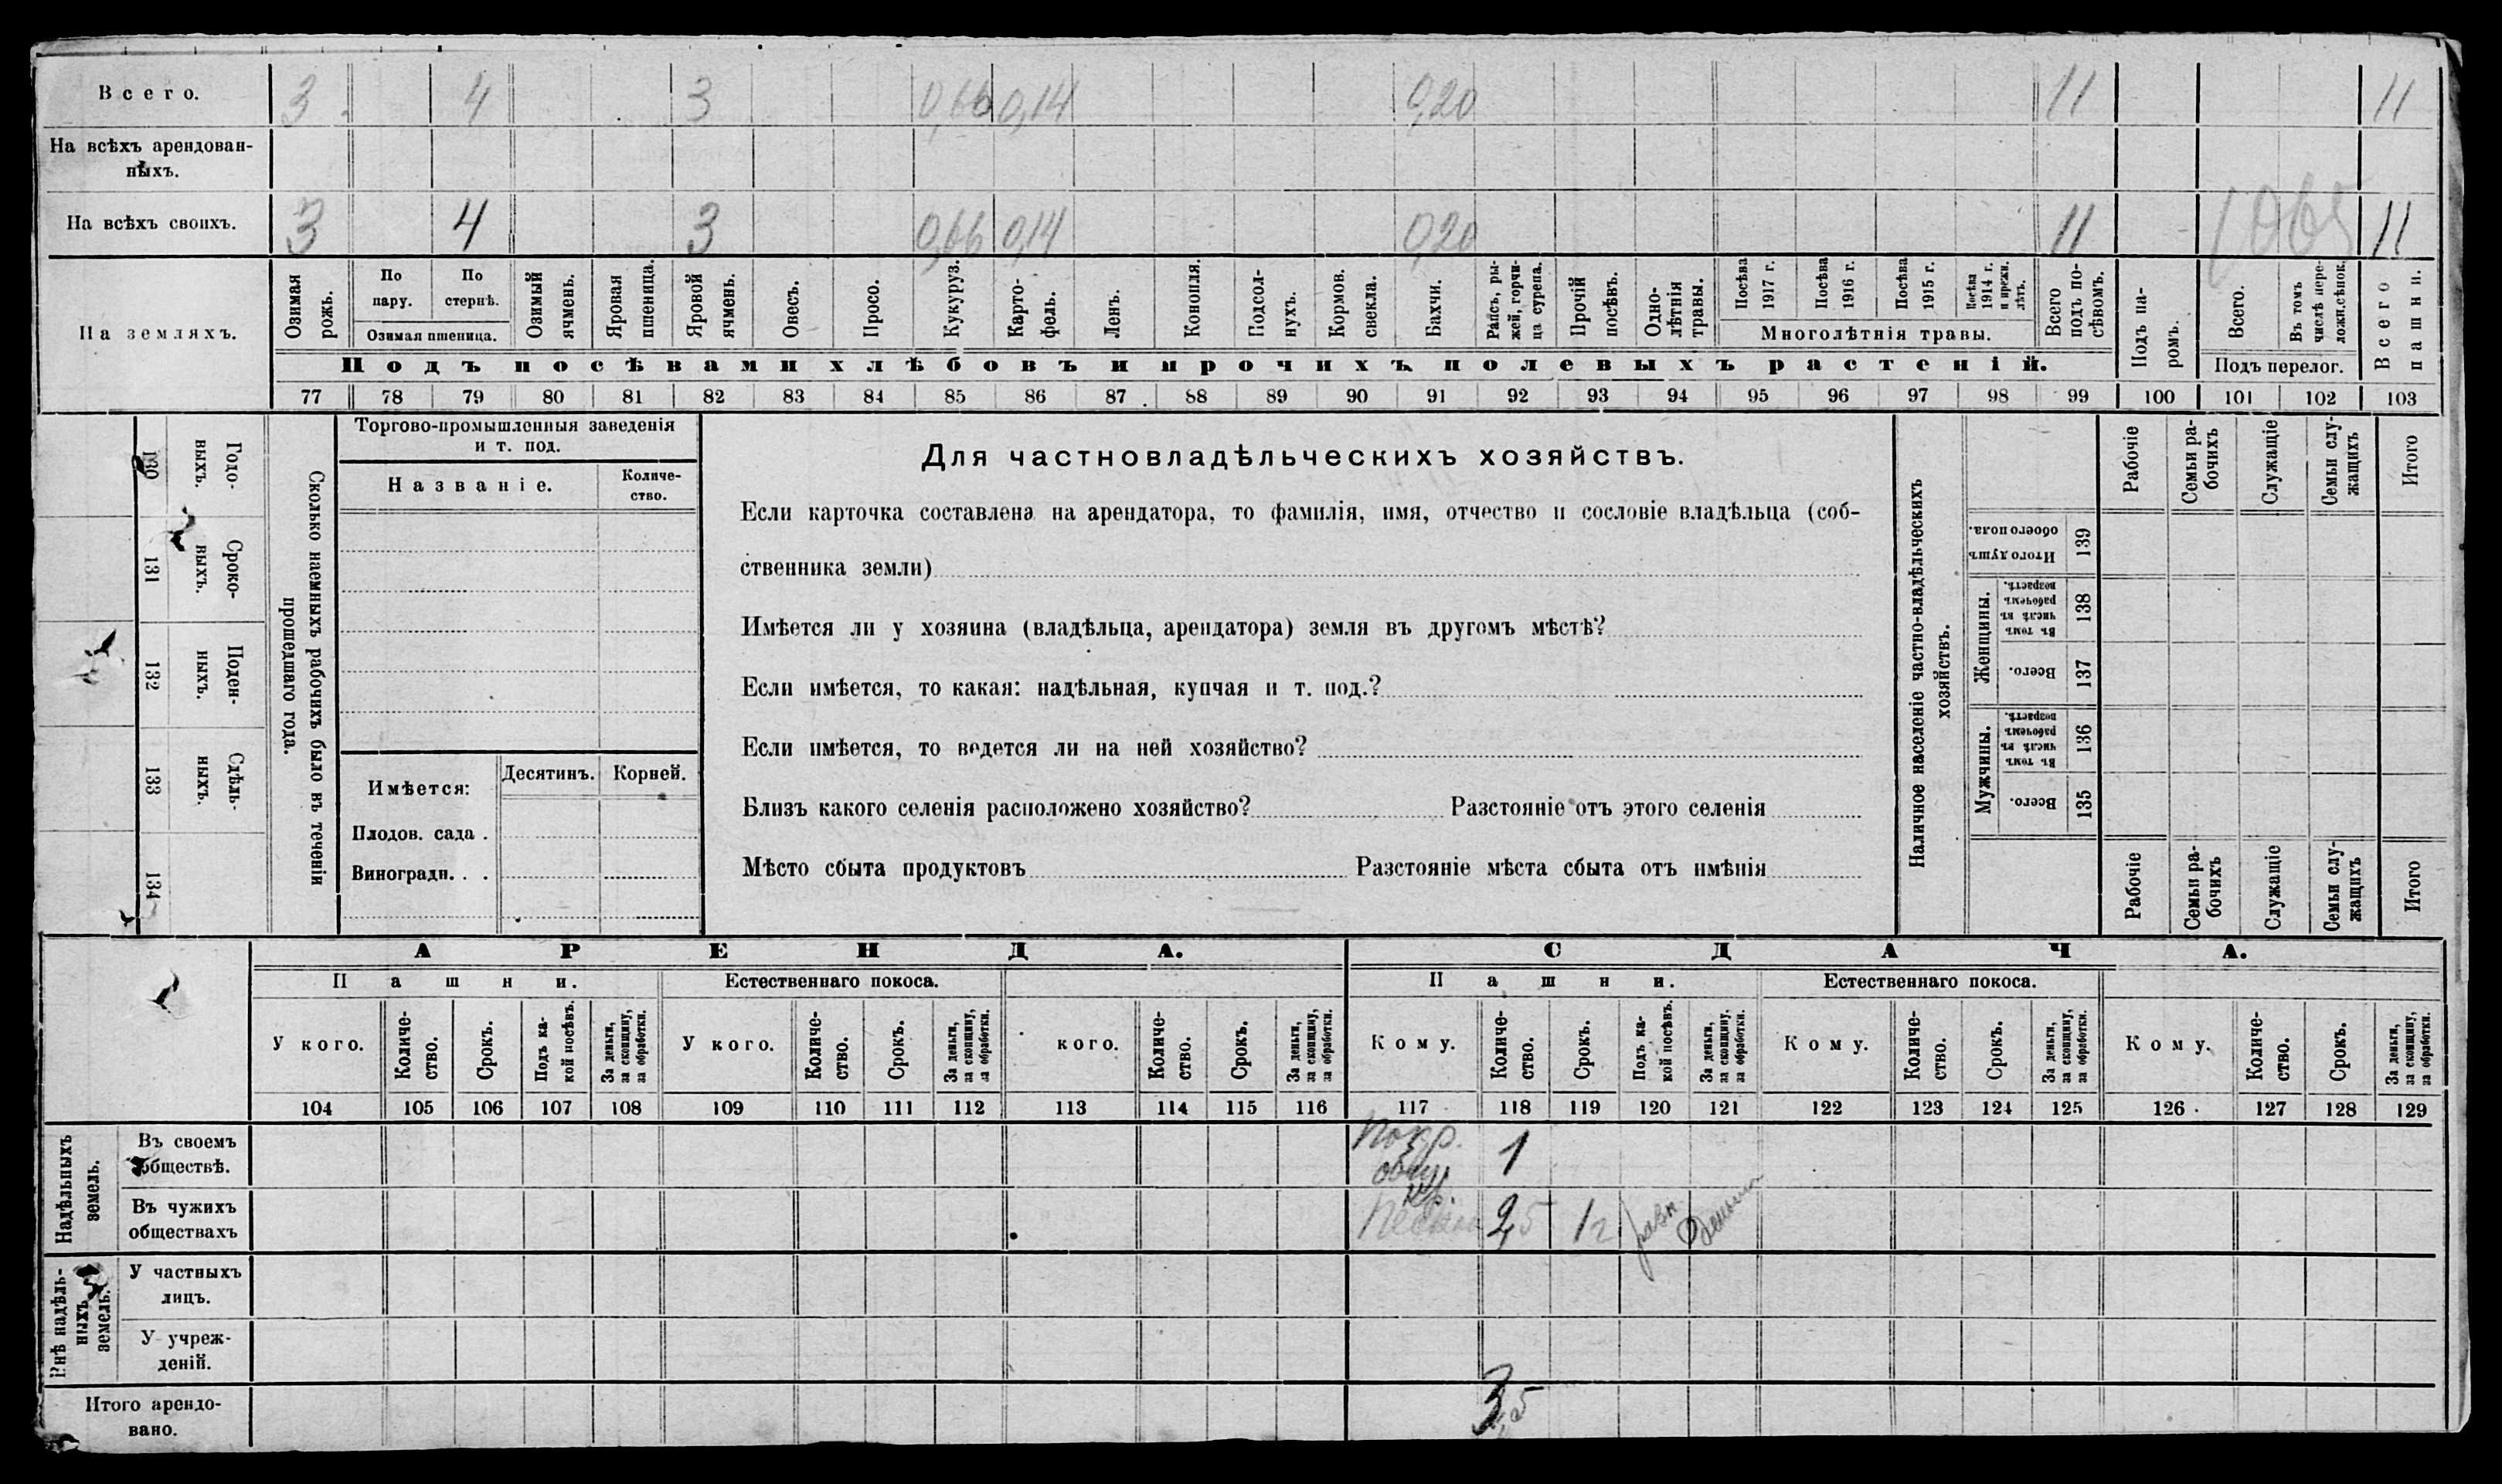 Всего. 3 4 3 0,66 0,14 0,20 11 11
На всѣхъ арендован-
ныхъ.
На всѣхъ своихъ. 3 4 3 0,66 0,14 0,20 11 11
На земляхъ.
Озимая рожь.
По пару.
По стернѣ.
Озимая пшеница.
Озимый ячмень.
Яровая пшеница.
Яровой ячмень.
Овесъ.
Просо.
Кукуруз.
Карто-
фель.
Ленъ.
Конопля.
Подсол-
нухъ.
Кормов. свекла.
Бахчи.
Рапсъ, ры-
жей, горчи-
ца сурепа.
Прочій посѣвъ.
Одно-
лѣтнія травы.
Посѣва 1917 г.
Посѣва 1916 г.
Посѣва 1915 г.
Посѣва 1914 г. и прежн. лѣтъ.
Многолѣтнія травы.
Всего подъ по-
сѣвомъ.
Подъ посѣвами хлѣбовъ и прочихъ полевыхъ растеній.
Подъ па-
ромъ.
Всего.
Въ томъ числѣ пере-
ложн. сѣнок.
Подъ перелог.
Всего пашни.
77 78 79 80 81 82 83 84 85 86 87 88 89 90 91 92 93 94 95 96 97 98 99 100 101 102 103
130 Годо-
ныхъ.
131 Сроко-
ныхъ.
132 Поден-
ныхъ.
133 Сдѣль-
ныхъ.
134
Сколько наемныхъ рабочихъ было въ теченіи
прошедшаго года.
Торгово-промышленныя заведенія
и т. под.
Названіе.
Количе-
ство.
Имѣется: Десятинъ. Корней.
Плодов. сада .
Виноградн. . .
Для частновладѣльческихъ хозяйствъ.
Если карточка составлена на арендатора, то фамилія, имя, отчество и сословіе владѣльца (соб-
ственника земли)
Имѣется ли у хозяина (владѣльца, арендатора) земля въ другомъ мѣстѣ?
Если имѣется, то какая: надѣльная, купчая и т. под.?
Если имѣется, то ведется ли на ней хозяйство?
Близъ какого селенія расположено хозяйство? Разстояніе отъ этого селенія
Мѣсто сбыта продуктовъ Разстояніе мѣста сбыта отъ имѣнія
Наличное населеніе частно-владѣльческихъ
хозяйствъ.
Рабочіе
Семьи ра-
бочихъ
Служащіе
Семьи слу-
жащихъ
Итого
Итого душъ обоего пола. 139
Женщины.
Въ томъ числѣ въ рабочемъ возрастѣ. 138
Всего. 137
Мужчины.
Въ томъ числѣ въ рабочемъ возрастѣ. 136
Всего. 135
Рабочіе
Семьи ра-
бочихъ
Служащіе
Семьи слу-
жащихъ
Итого
АРЕНДА. СДАЧА.
Пашни. Естественнаго покоса. Пашни. Естественнаго покоса.
У кого.
Количе-
ство.
Срокъ.
Подъ ка-
кой посѣвъ.
За деньги, за скопщину, за обработки.
У кого.
Количе-
ство.
Срокъ.
За деньги, за скопщину, за обработки.
кого.
Количе-
ство.
Срокъ.
За деньги, за скопщину, за обработки.
Кому.
Количе-
ство.
Срокъ.
Подъ ка-
кой посѣвъ.
За деньги, за скопщину, за обработки.
Кому.
Количе-
ство.
Срокъ.
За деньги, за скопщину, за обработки.
Кому.
Количе-
ство.
Срокъ.
За деньги, за скопщину, за обработки.
104 105 106 107 108 109 110 111 112 113 114 115 116 117 118 119 120 121 122 123 124 125 126 127 128 129
Надѣльныхъ земель.
Въ своемъ
обществѣ. 1
Въ чужихъ
обществахъ 2,5 1 г.
Внѣ надѣль-
ныхъ земель.
У частныхъ
лицъ.
У учреж-
деній.
Итого арендо-
вано. 3,5